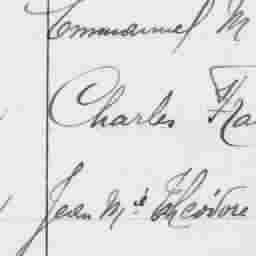 Emmanuel M
Charles Fra
Jean Mie Théodore